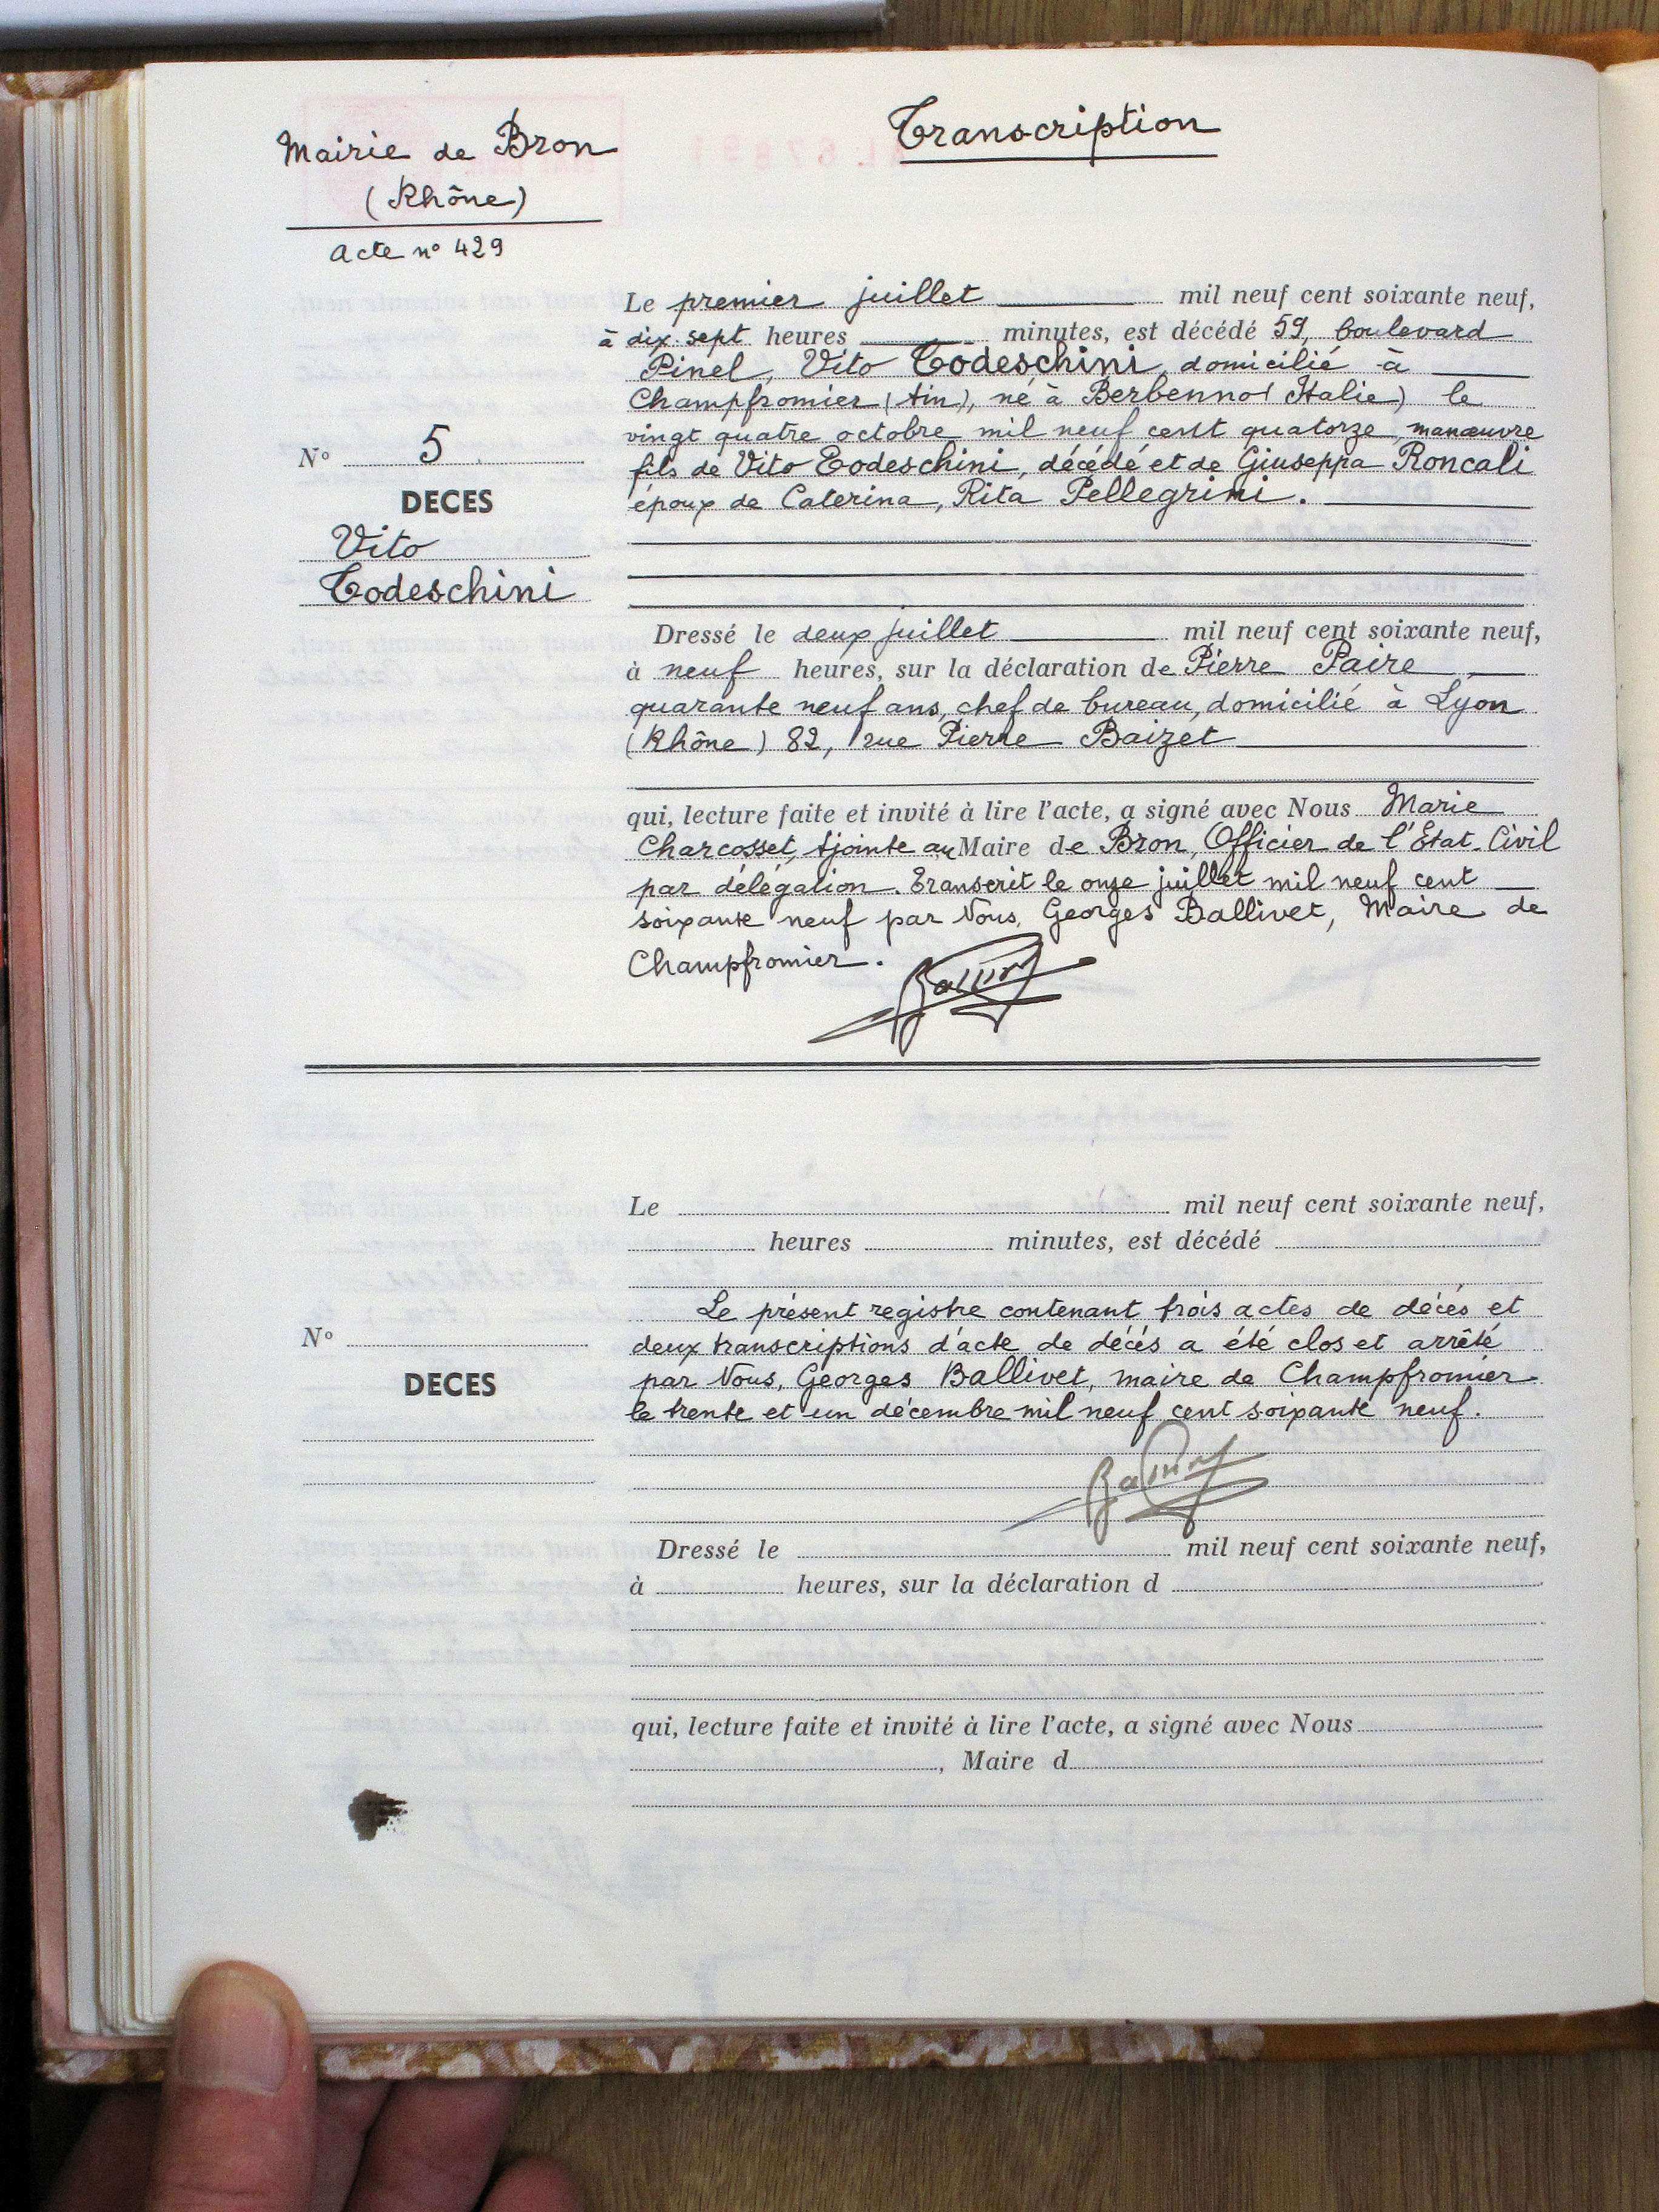 Transcription
Mairie de Bron
(Rhône)
Acte n° 429
Le premier juillet mil neuf cent soixante neuf,
à dix-sept heures minutes, est décédé 59, boulevard
Pinel, Vito Todeschini, domicilié à
Champfromier (Ain), né à Berbenno (Italie) le
vingt quatre octobre mil neuf cent quatorze, manœuvre
fils de Vito Todeschini, décédé et de Giuseppa Roncali
époux de Caterina, Rita Pellegrini.
N° 5
DECES
Vito
Todeschini
Dressé le deux juillet mil neuf cent soixante neuf,
à neuf heures, sur la déclaration de Pierre Paire
quarante neuf ans, chef de bureau, domicilié à Lyon
(Rhône) 82, rue Pierre Baizet
qui, lecture faite et invité à lire l'acte, a signé avec Nous Marie
Charcosset, Ajointe au Maire de Bron, Officier de l'Etat-Civil
par délégation. Transcrit le onze juillet mil neuf cent
soixante neuf par Nous, Georges Ballivet, Maire de
Champfromier.
Le mil neuf cent soixante neuf,
heures minutes, est décédé
Le présent registre contenant trois actes de décés et
deux transcriptions d'acte de décés a été clos et arrêté
par Nous, Georges Ballivet, maire de Champfromier
le trente et un décembre mil neuf cent soixante neuf.
N°
DECES
Dressé le mil neuf cent soixante neuf,
à heures, sur la déclaration d
qui, lecture faite et invité à lire l'acte, a signé avec Nous
, Maire d